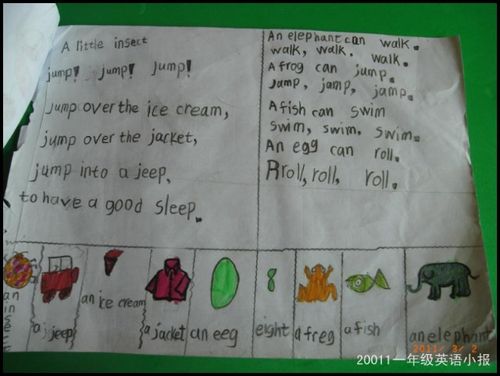 A little insect
jump! jump! jump!
jump over the ice cream,
jump over the jacket,
jump into a jeep,
to have a good sleep.
An elephant can walk.
walk, walk. walk.
A frog can jump.
jump, jamp, jamp.
A fish can swim
swim, swim. swim.
An egg can roll.
Rroll, roll, roll.
an insect
a jeep
an ice cream
a jacket
an eeg
eight
a freg
a fish
an elephant
2011/ 3/ 2
20011一年级英语小报